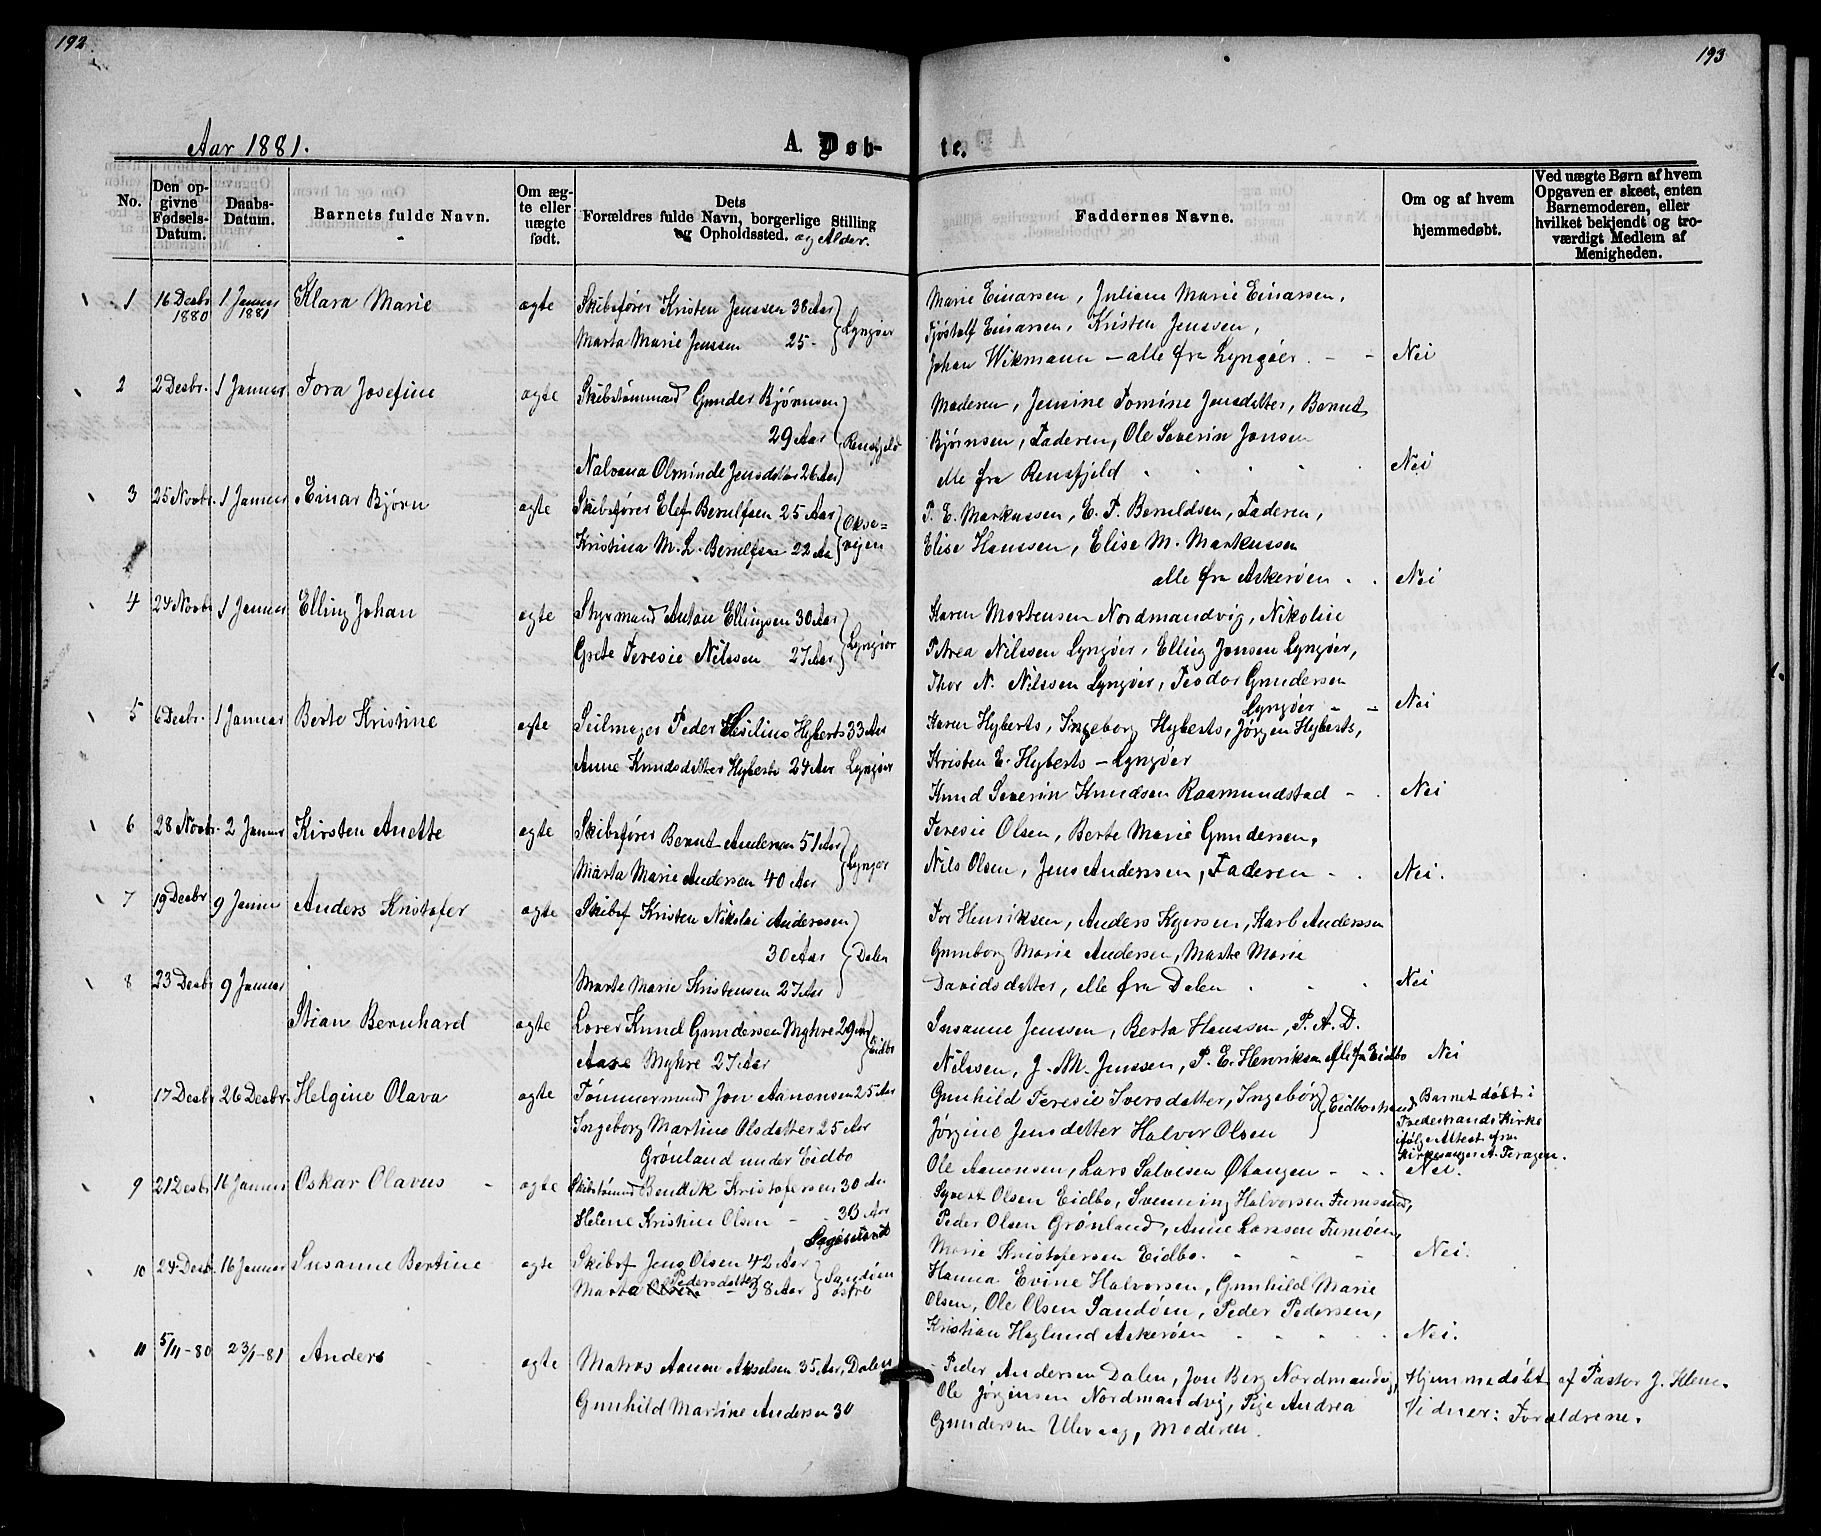 192
193
Aar 1881.
A. Døb-
te.
No.
Den op-
givne
Fødsels-
Datum.
Daabs-
Datum.
Barnets fulde Navn.
Om æg-
te eller
uægte
født.
Dets
Forældres fulde Navn, borgerlige Stilling
og Opholdssted. og Alder.
Faddernes Navne.
Om og af hvem
hjemmedøbt.
Ved uægte Børn af hvem
Opgaven er skeet, enten
Barnemoderen, eller
hvilket bekjendt og tro-
værdigt Medlem af
Menigheden.
1 16 Desbr 1880 1 Januar 1881 Klara Marie ægte Skibsfører Kristen Jenssen 38 Aar
Marta Marie Jenssen 25 - Lyngøer
Marie Einarsen, Juliane Marie Einarsen,
Tjøstolf Einarsen, Kristen Jenssen,
Johan Wikmann - alle fra Lyngøer. - - Nei
2 2 Desbr. 1 Januar Tora Josefine ægte Skibstømmand Gunder Bjørnsen
29 Aar Rensfjeld
Nalvana Olminde Jensdatter 26 Aar
Moderen, Jenine Tomine Jensdatter, Bernt
Bjørnsen, Faderen, Ole Severin Jensen
alle fra Rensfjeld Nei
3 25 Novbr. 1 Januar Einar Bjørn ægte Skibsfører Elef Berulfsen 25 Aar
Kristina M. L. Berulfsen 22 Aar Okse-
vigen
P. E. Markussen, E. T. Beruldsen, Faderen,
Elise Hanssen, Elise M. Markussen
alle fra Askerøen Nei
4 24 Novbr 1 Januar Elling Johan ægte Styrmand Anton Ellingsen 30 Aar
Grete Teresie Nilssen 27 Aar Lyngør
Karen Mortensen Nordmandvig, Nikoline
Petrea Nilssen Lyngøer, Elling Jensen Lyngøer,
Thor N. Nilssen Lyngøer, Teodor Gundersen
Lyngøer - - Nei
5 6 Desbr. 1 Januar Berte Kristine ægte Seilmager Peder Hyberts 33 Aar
Anne Knudsdatter Hyberts 24 Aar Lyngør
Karen Hyberts, Ingeborg Hyberts, Jørgen Hyberts,
Kristen E. Hyberts - Lyngøer
Knud Severin Knudsen Raamundstad - Nei
6 28 Novbr. 2 Januar Kirsten Anette ægte Skibsfører Bernt Andersen 51 Aar
Marta Marie Andersen 40 Aar Lyngør
Teresie Olsen, Berte Marie Gundersen,
Nils Olsen, Jens Anderssen, Faderen Nei.
7 19 Desbr 9 Januar Anders Kristofer ægte Skibsf Kristen Nikolai Anderssen
30 Aar Dalen
Marte Marie Kristensen 27 Aar
Tor Henriksen, Anders Kgersen, Karl Anderssen
Gunborg Marie Andersen, Marte Marie
Davidsdatter, alle fra Dalen Nei
8 23 Desbr 9 Januar
Stian Bernhard ægte Lorer Knud Gundersen Myhre 29 Aar
Aase Myhre 27 Aar Eidbo
Susanne Jenssen, Berta Hanssen, P. A. D.
Nilssen, J. M. Jenssen, P. E. Henriksen Alle fra Eidbo Nei
17 Desbr 26 Desbr. Helgine Olava ægte Tømmermand Jon Aanonsen 25 Aar
Ingeborg Martine Olsdatter 25 Aar
Grønland under Eidbo
Gunhild Teresie Iversdatter, Ingebør
Jørgine Jensdatter Halvor Olsen Eidbostrand
Ole Aanonsen, Lars Salvesen Øtangen - -
Barnet døbt i
Tvedestrands Kirke
ifølge Attest fra
Kirkesanger A. Teragen.
Nei.
9 21 Desbr 16 Januar Oskar Olavus - ægte Skibstømmd Bendik Kristofersen 30 Aar
Helene Kristine Olsen - - 30 Aar
Sagesund
Syvert Olsen Eidbo, Svenning Halvorsen Furøsund,
Peder Olsen Grønland, Anne Larssen Furuøen,
Marie Kristofersen Eidbo. Nei.
10 24 Desb. 16 Januar Susanne Bertine ægte Skibsf Jens Olsen 42 Aar
Marta Pedersdatter 38 Aar Sandøen
østre
Hanna Evine Halvorsen, Gunhild Marie
Olsen, Ole Olsen Sandøen, Peder Pedersen,
Kristian Haglund Askerøen Nei.
11 5/11-80 23/1-81 Anders ægte Matros Aanon Akselsen 35 Aar, Dalen
Gunhild Martine Andersen 30
Peder Andersen Dalen, Jon Berg Nordmandvig,
Ole Jørgensen Nordmandvig, Pige Andrea
Gundersen Ulevaag, Moderen.
Hjemmedøbt af Pastor J. Klem.
Vidner: Forældrene.